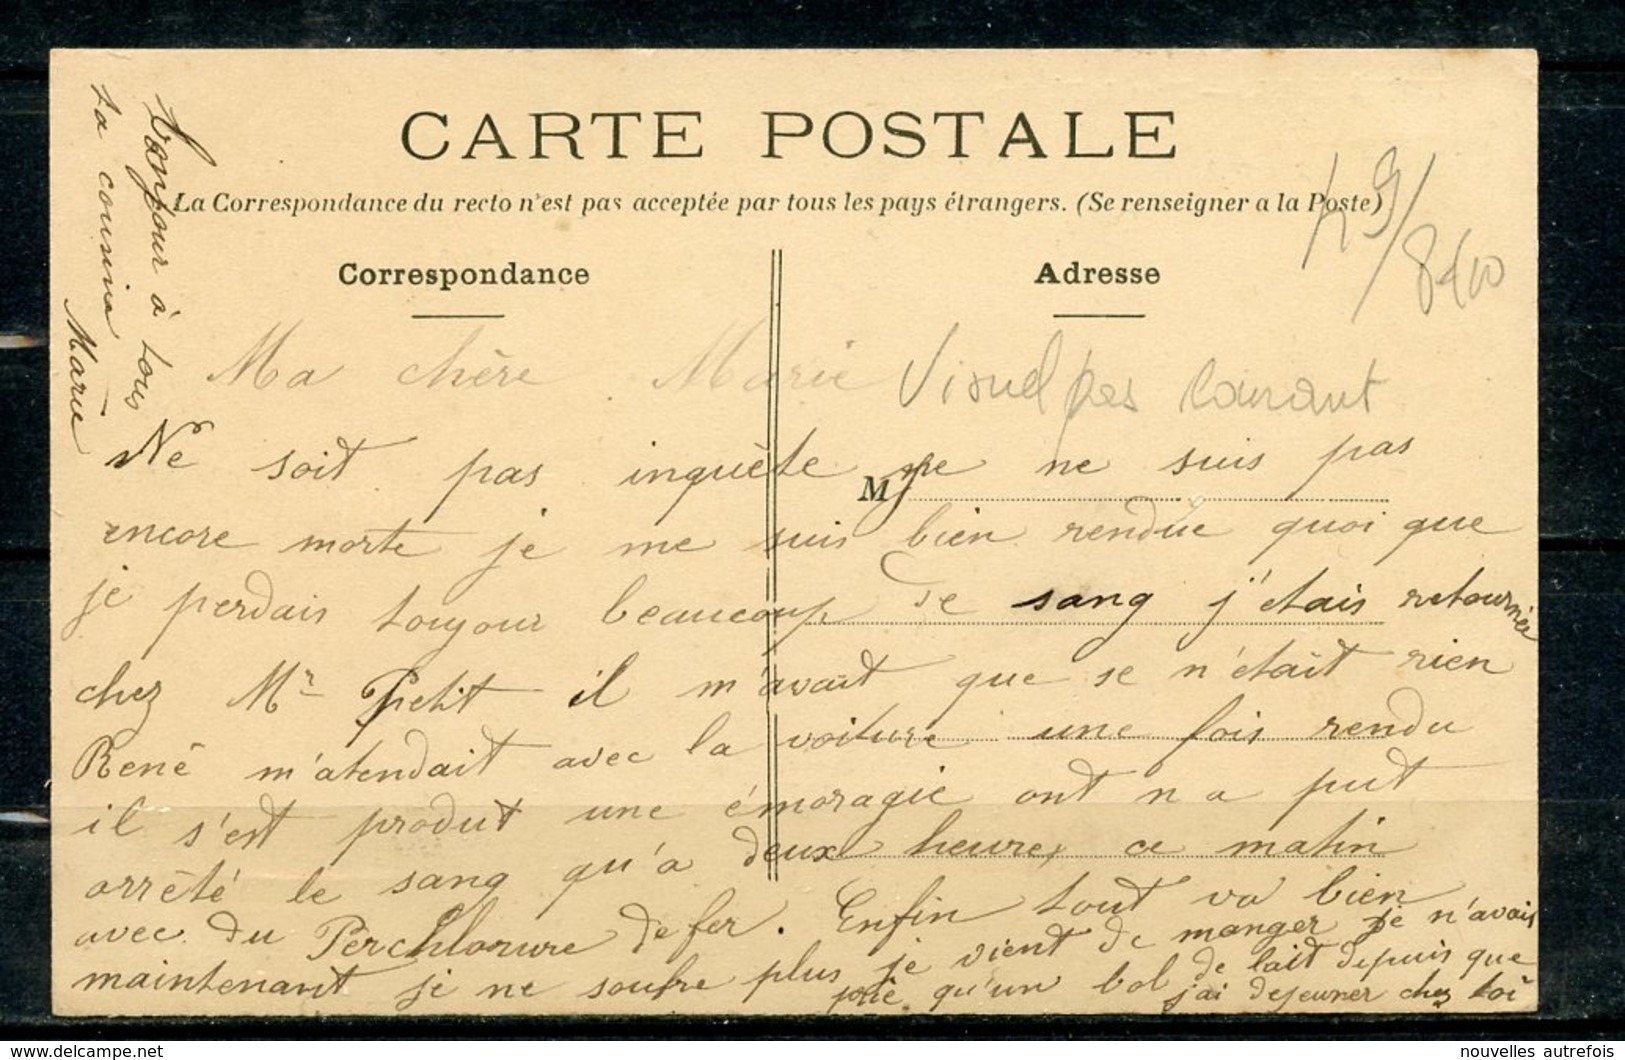 CARTE POSTALE
La Correspondance du recto n'est pas acceptée par tous les pays étrangers. (Se renseigner a la Poste)
Correspondance
Adresse
Ma chère Marie
Visuel pas courant
M
Ne soit pas inquète je ne suis pas
encore morte je me suis bien rendue quoi que
je perdais toujour beaucoup de sang j'étais retournée
chez Mr Petit il m'avait que se n'était rien
René m'atendait avec la voiture une fois rendu
il s'est produt une émoragie ont n a put
arrêté le sang qu'a deux heures ce matin
avec du Perchlorure de fer. Enfin tout va bien
maintenant je ne soufre plus je vient de manger je n'avais
prie qu'un bol de lait depuis que
j'ai dejeuner chez toi
Bonjour à tous
ta cousine
Marie
nouvelles autrefois